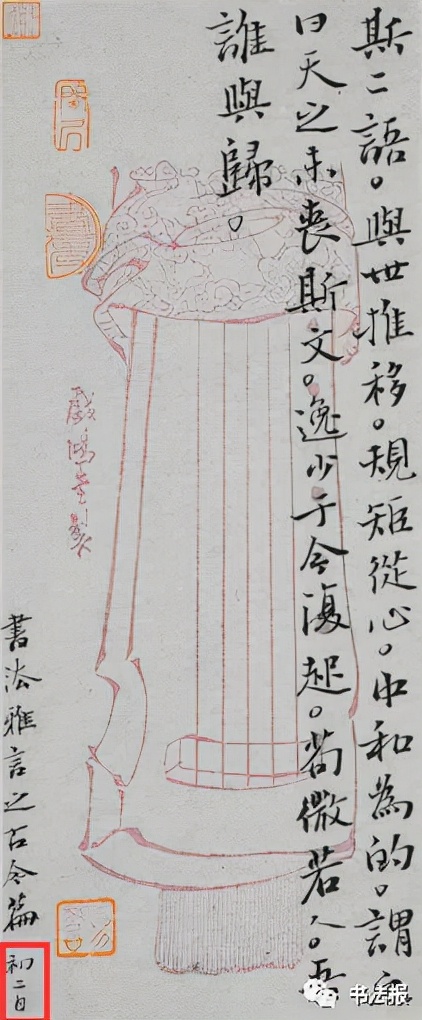 斯二語。與世推移。規矩從心。中和為的。謂之
曰天之未喪斯文。逸少于今復起。苟微若人。吾
誰與歸。
戲鴻堂製
書法雅言之古今篇
初二日
书法报